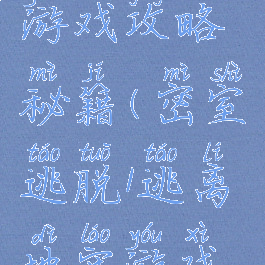 游戏攻略
mì jí mì shì
秘籍(密室
táo tuō táo lí
逃脱/逃离
dì láo yóu xì
地牢游戏